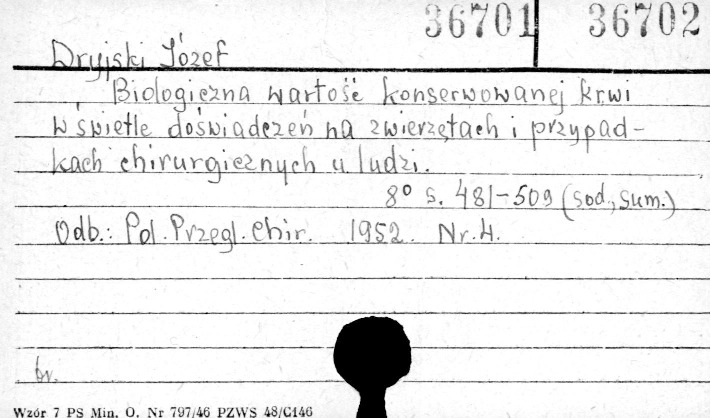 36701 36702
Dryjski Józef
Biologiczna wartość konserwowanej krwi
w świetle doświadczeń na zwierzętach i przypad-
kach chirurgicznych u ludzi.
8° s. 481-509 (sod., sum.)
Odb.: Pol. Przegl. Chir. 1952. Nr. 4.
br.
Wzór 7 PS Min. O. Nr 797/46 PZWS 48/C146